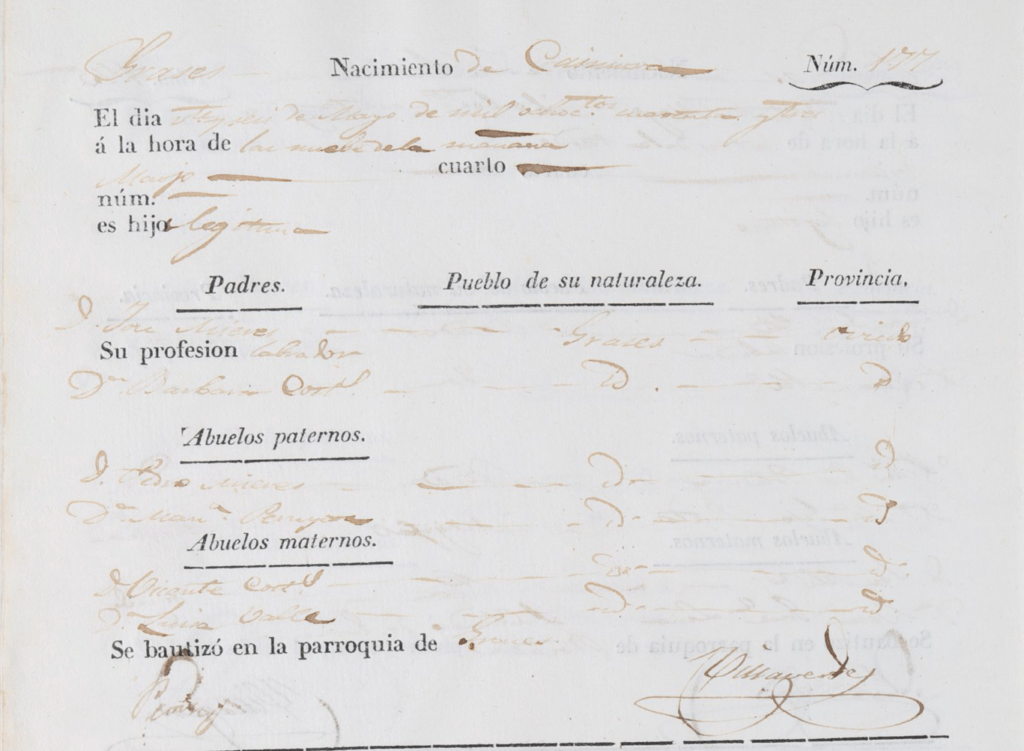 Grases Nacimiento de Casimira Núm. 177
El dia de Mayo de mil ochoc.tos cuarenta y tres
á la hora de las nueve de la mañana
Mayo cuarto
núm.
es hijo legitima
Padres. Pueblo de su naturaleza. Provincia.
D. José Grases Oviedo
Su profesion labrador
Dª Barbara Cort.l D. D
Abuelos paternos.
D. Pedro D. D
Dª Man.ª D. D
Abuelos maternos.
D. Vicente Cort.l D. D.
Dª Luisa Valle D. D.
Se bautizó en la parroquia de Grases
Villaverde